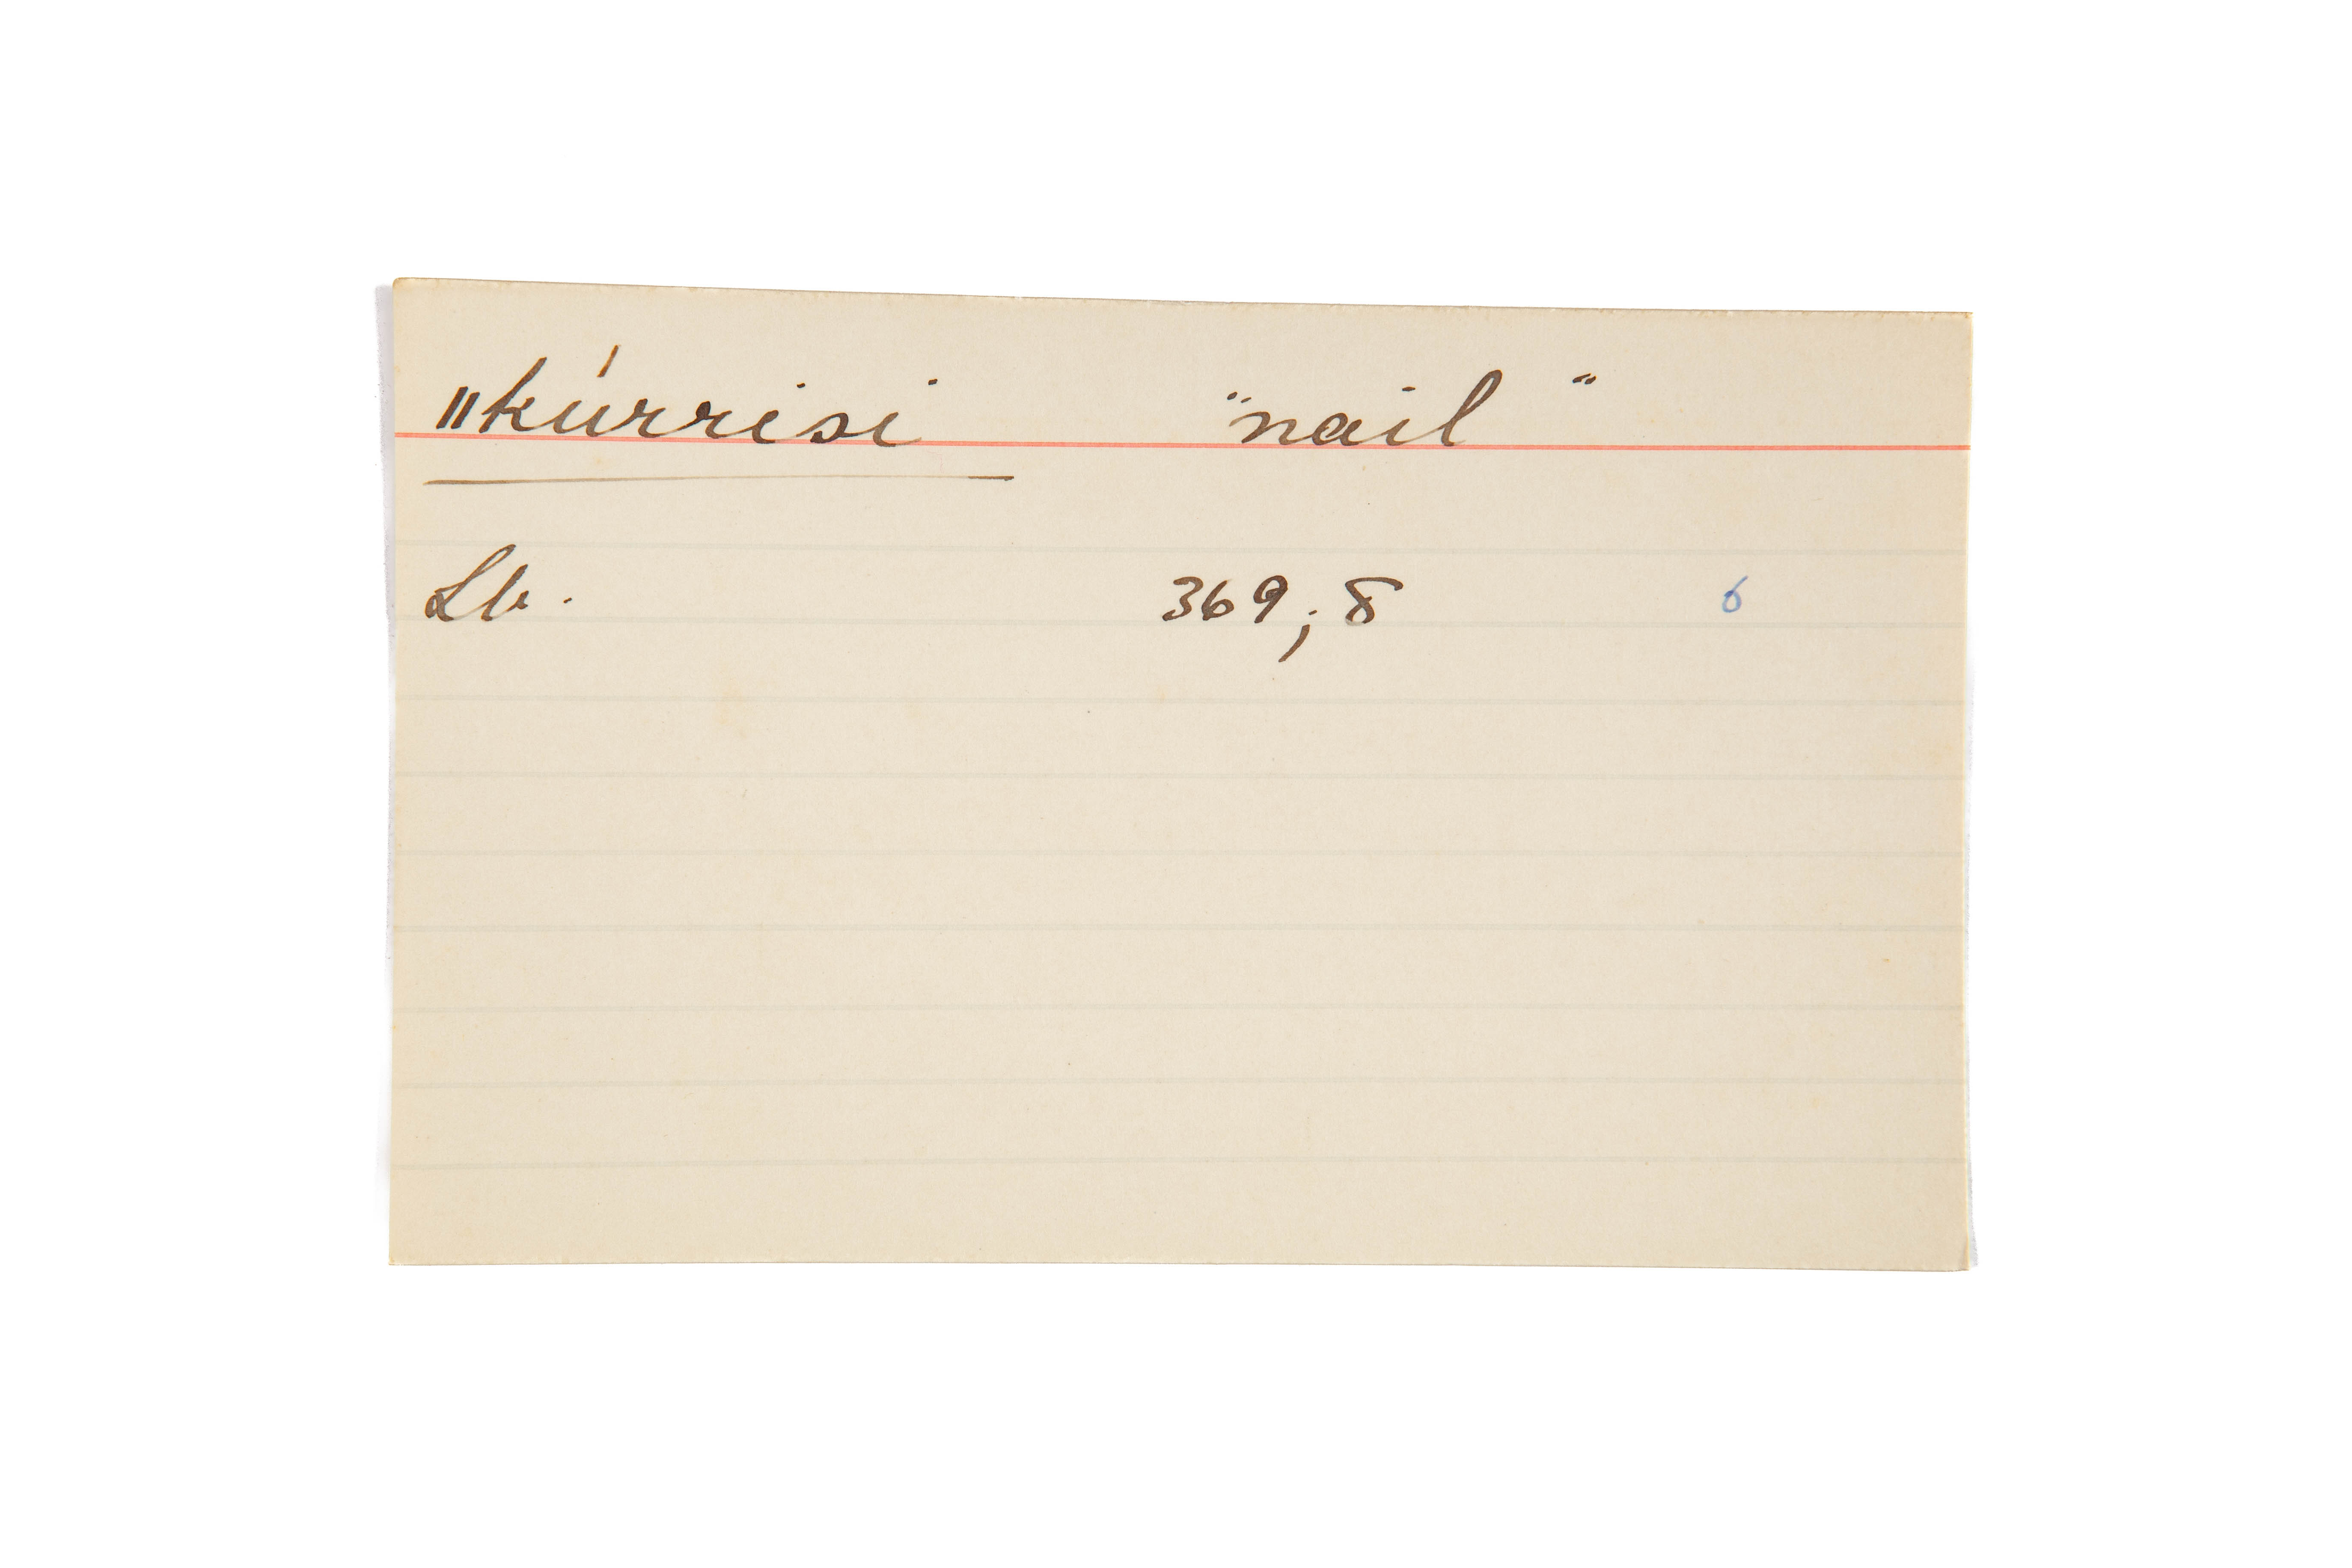 ‖kúrrisi "nail"
Lb. 369; 8 6